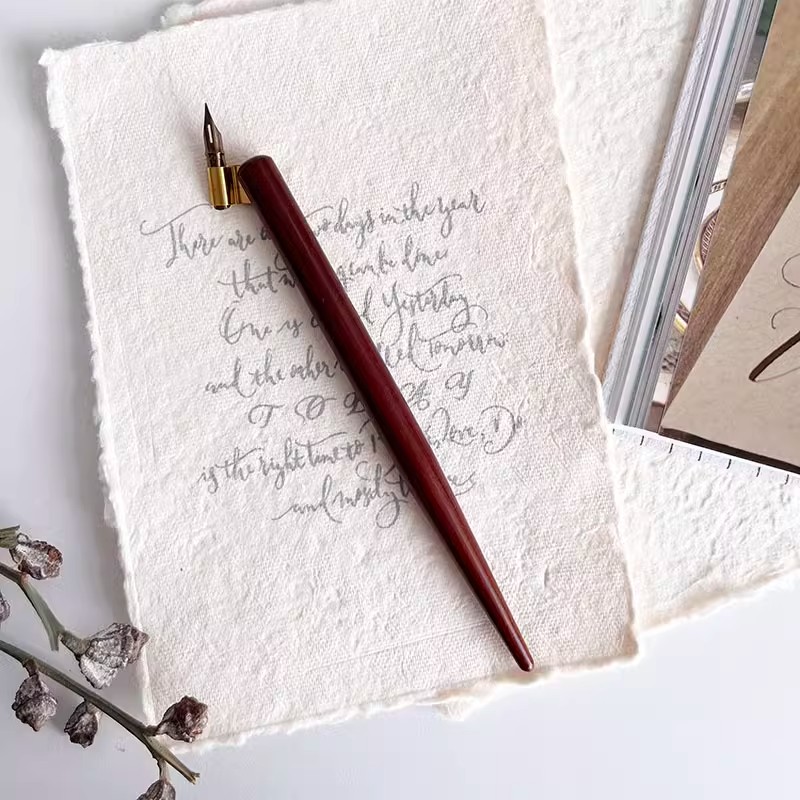 There are days in the year
that done
One is Yesterday
and the other Tomorrow
T O D A Y
is the right time to Love, Do
and mostly